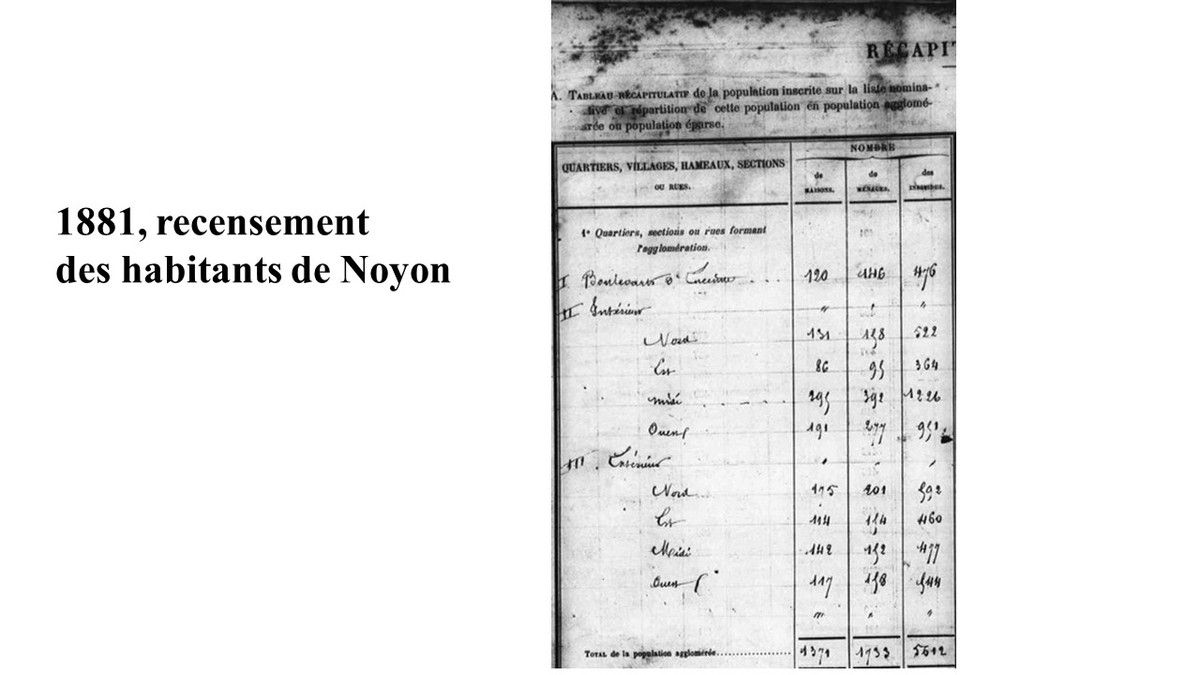 1881, recensement
des habitants de Noyon
RÉCAPIT
A. TABLEAU RÉCAPITULATIF de la population inscrite sur la liste nomina-
tive et répartition de cette population en population agglomé-
rée ou population éparse.
QUARTIERS, VILLAGES, HAMEAUX, SECTIONS
OU RUES.
NOMBRE
de MAISONS. de MÉNAGES. des INDIVIDUS.
1° Quartiers, sections ou rues formant
l'agglomération.
I Boulevards d'Enceinte .... 120 146 476
II Intérieur " " "
Nord 131 158 522
Est 86 95 364
Midi 295 392 1226
Ouest 191 277 951
III. Extérieur " " "
Nord 175 201 592
Est 114 154 460
Midi 142 152 477
Ouest 117 158 544
" " "
TOTAL de la population agglomérée.................. 1371 1733 5612